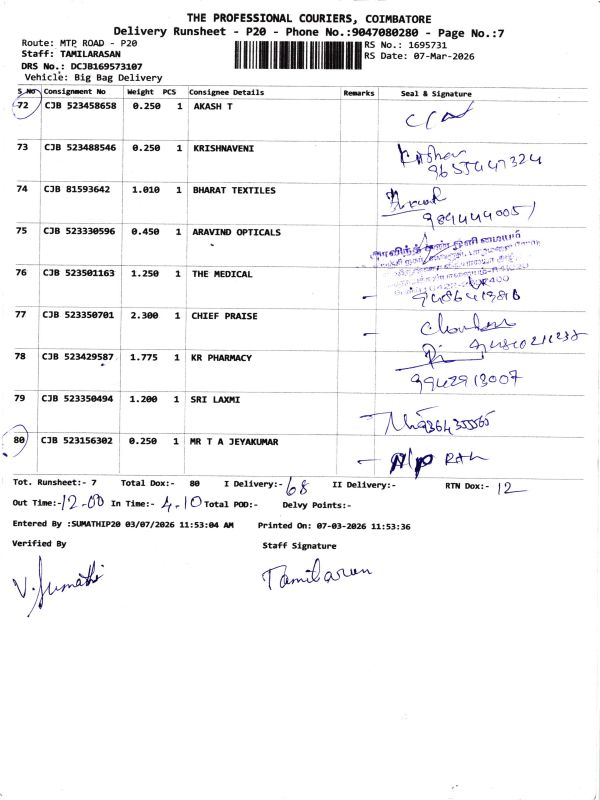 THE PROFESSIONAL COURIERS, COIMBATORE
Delivery Runsheet - P20 - Phone No.:9047080280 - Page No.:7
Route: MTP ROAD - P20
RS No.: 1695731
Staff: TAMILARASAN
RS Date: 07-Mar-2026
DRS No.: DCJB169573107
Vehicle: Big Bag Delivery
S.No Consignment No Weight PCS Consignee Details Remarks Seal & Signature
72 CJB 523458658 0.250 1 AKASH T
73 CJB 523488546 0.250 1 KRISHNAVENI
9655447324
74 CJB 81593642 1.010 1 BHARAT TEXTILES
9894440051
75 CJB 523330596 0.450 1 ARAVIND OPTICALS
76 CJB 523501163 1.250 1 THE MEDICAL
77 CJB 523350701 2.300 1 CHIEF PRAISE
78 CJB 523429587 1.775 1 KR PHARMACY
9942913007
79 CJB 523350494 1.200 1 SRI LAXMI
80 CJB 523156302 0.250 1 MR T A JEYAKUMAR
Tot. Runsheet:- 7 Total Dox:- 80 I Delivery:- 68 II Delivery:- RTN Dox:- 12
Out Time:- 12-00 In Time:- 4.10 Total POD:- Delvy Points:-
Entered By :SUMATHIP20 03/07/2026 11:53:04 AM Printed On: 07-03-2026 11:53:36
Verified By Staff Signature
V. Sumathi Tamilarasan